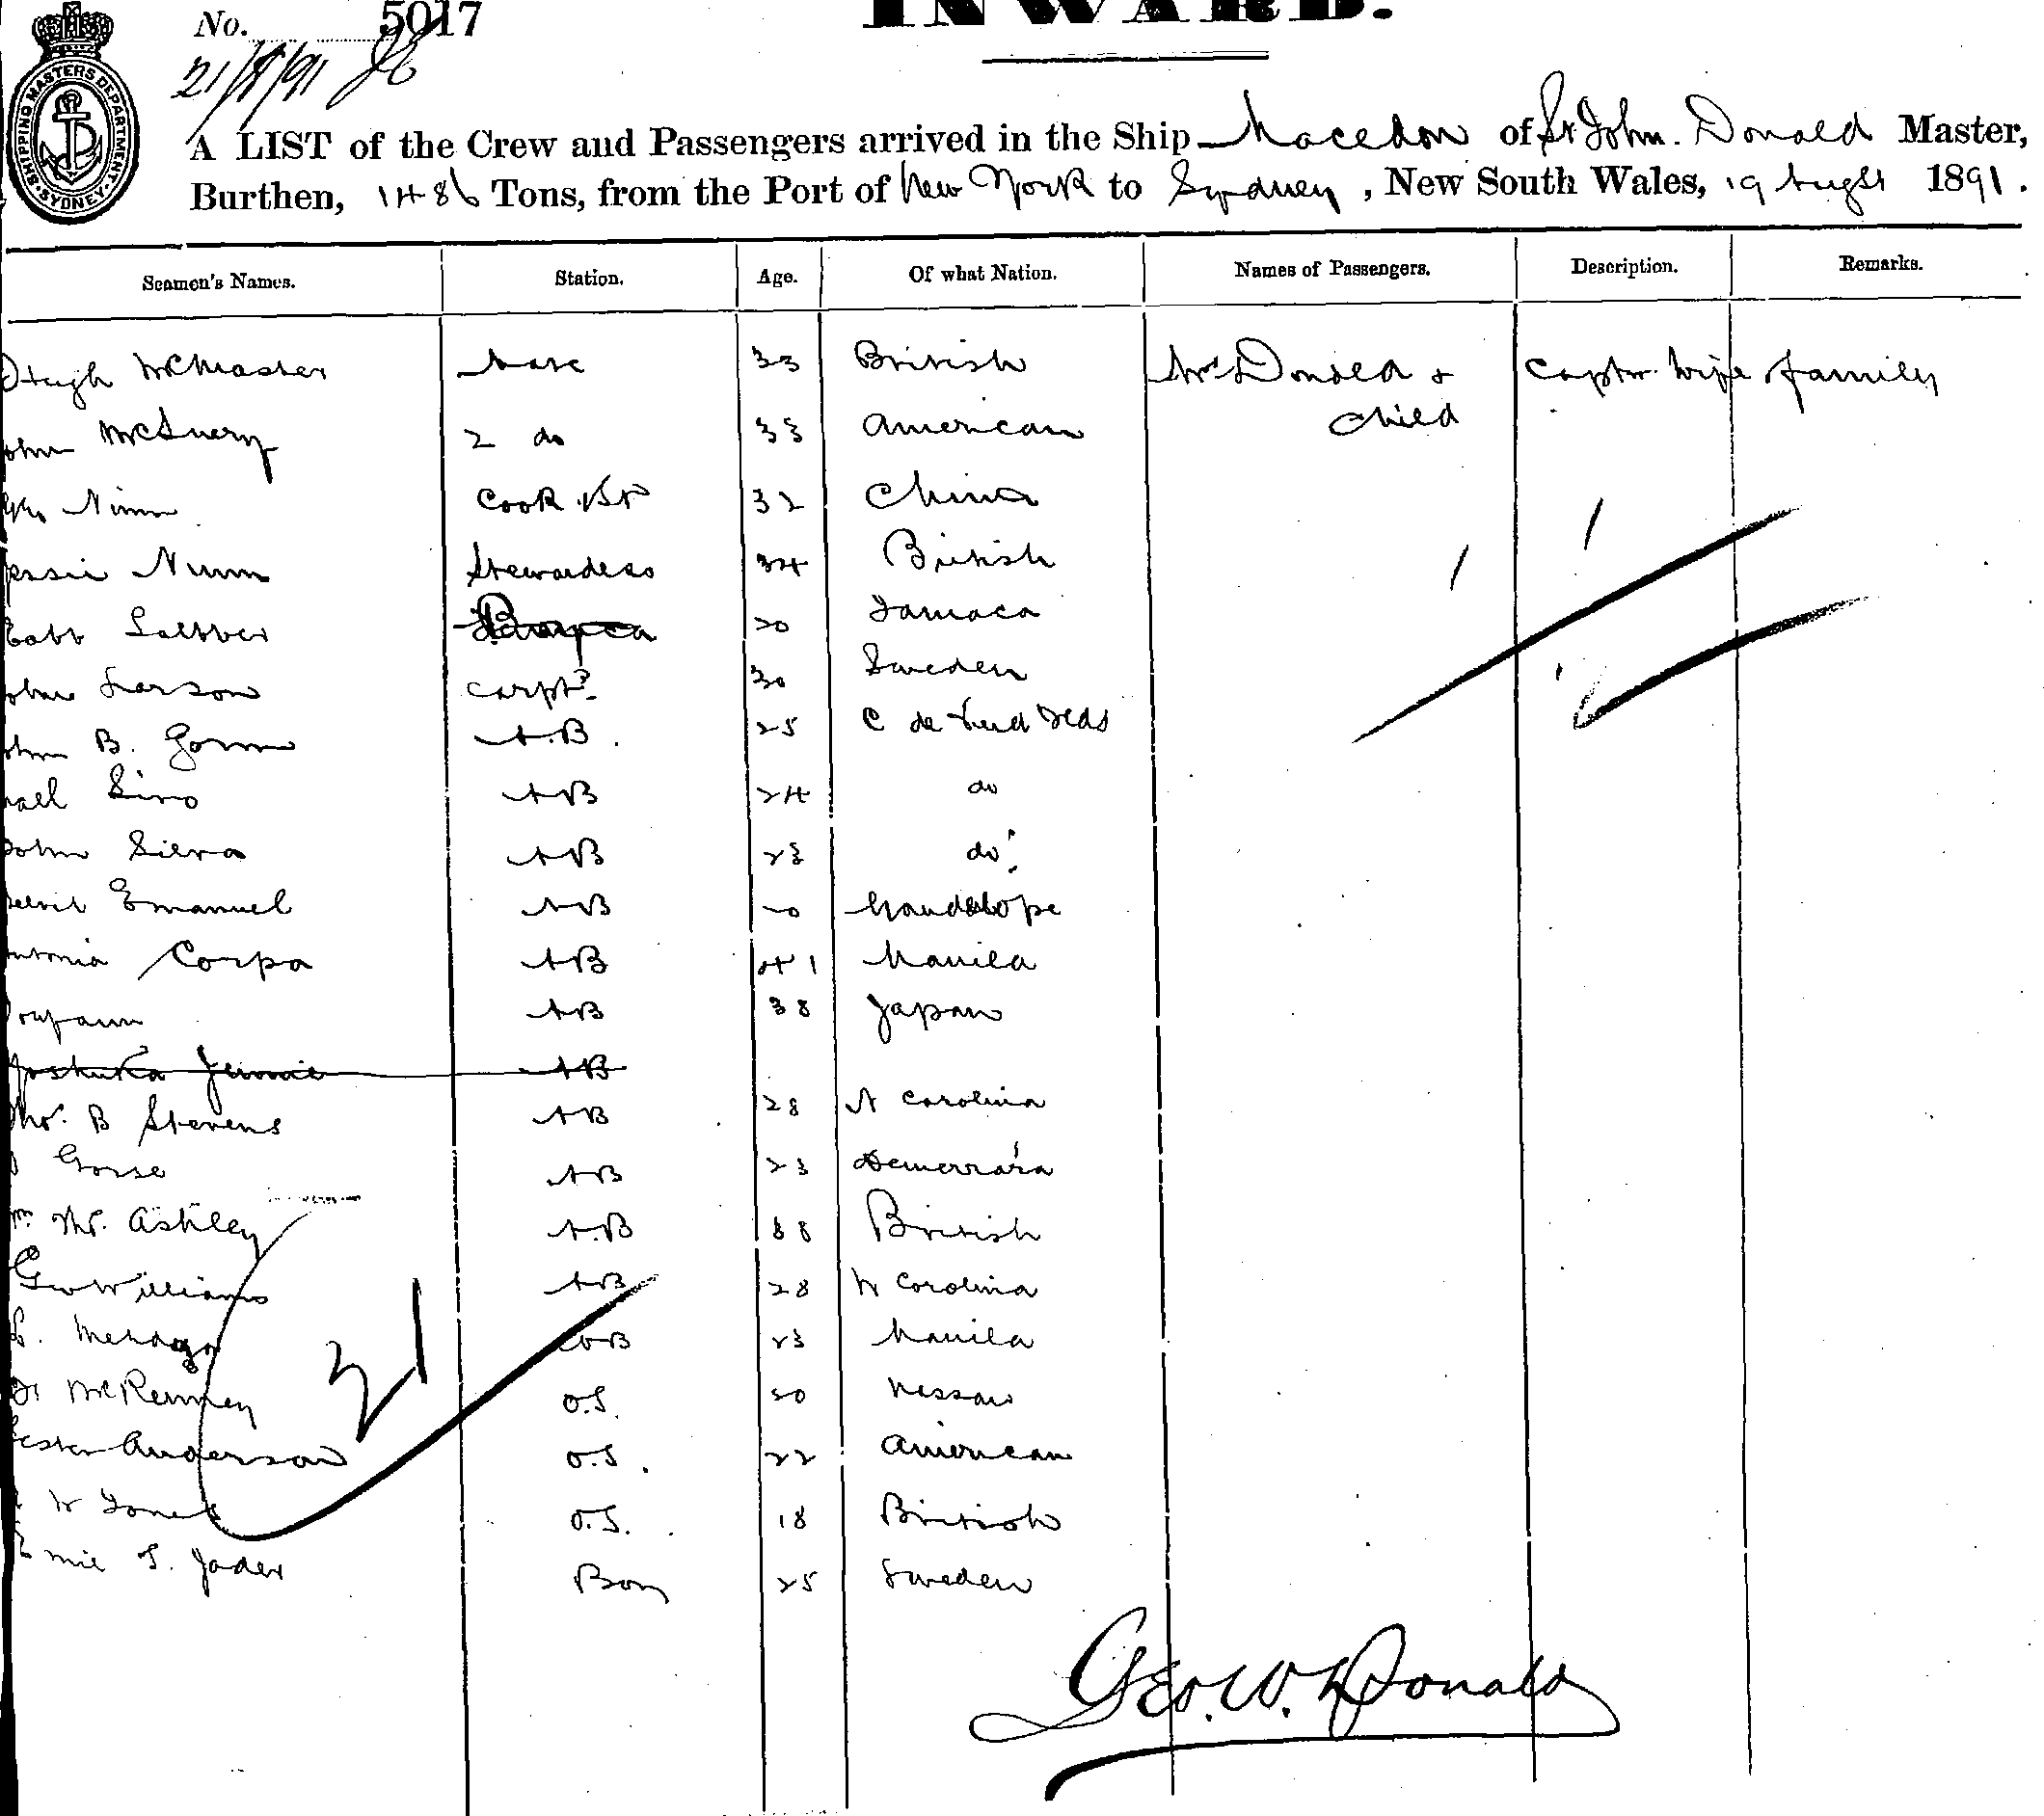 INWARD.
No. 5017
21/8/91
SHIPPING MASTERS DEPARTMENT SYDNEY
A LIST of the Crew and Passengers arrived in the Ship Macedon of St John. Donald Master,
Burthen, 1486 Tons, from the Port of New York to Sydney, New South Wales, 19 Augst 1891.
Seamen's Names. Station. Age. Of what Nation. Names of Passengers. Description. Remarks.
Hugh McMaster Mate 33 British Mrs Donald & Captn. Wife family
child
ohn 2 do 33 American
Cook & St 32 China
essie Nunn Stewardess 34 British
20 Jamaca
ohn Larson carptr 30 Sweden
ohn B. A.B. 25 C de Verd Ilds
A B 24 do
John Silva A B 23 do
Emanuel A B 20 Guadalope
ntonia Corpa A B 41 Manila
A B 38 Japan
A B
Tho. B Stevens A B 28 N Carolina
Gorse A B 23 Demerrara
m Mc. Ashley A.B 38 British
Geo Williams A B 28 N Carolina
A B 23 Manila
McKenney O.S. 20 Nassau
ester Anderson O.S. 22 American
W Jones O.S. 18 British
Boy 25 Sweden
21
Geo. W. Donald